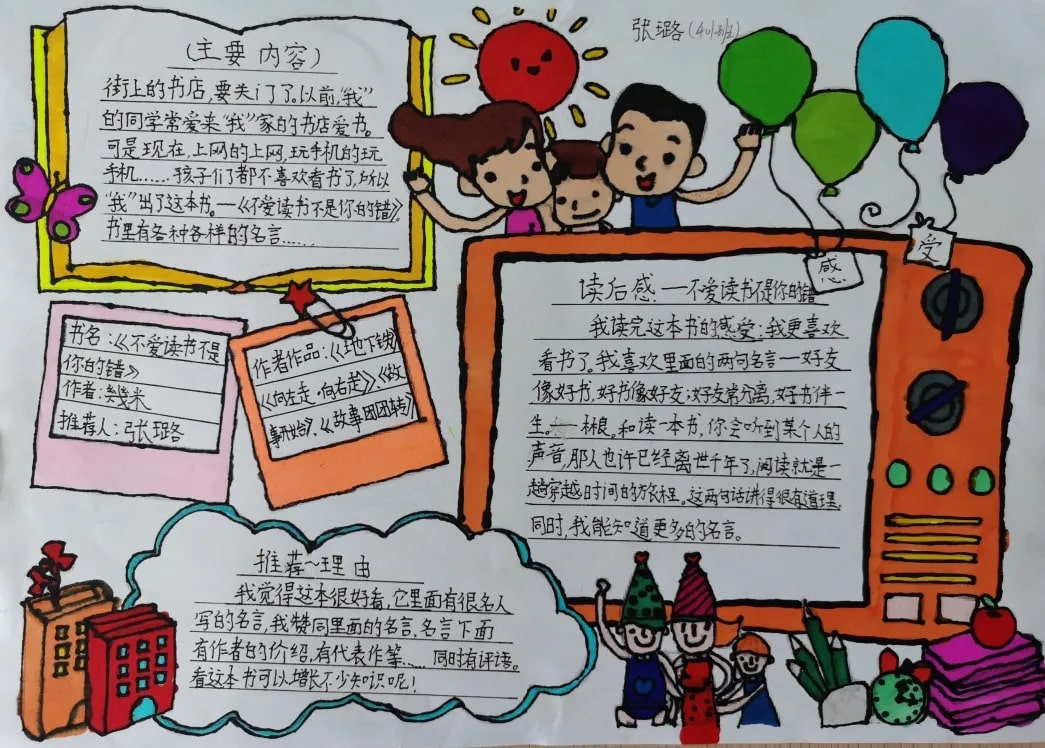 张璐(401班)
(主要内容)
街上的书店,要关门了。以前,“我”
的同学常爱来“我”家的书店爱书。
可是现在,上网的上网,玩手机的玩
手机……孩子们了都不喜欢看书了,所以
“我”出了这本书。—《不爱读书不是你的错》.
书里有各种各样的名言……
书名:《不爱读书不是
你的错》
作者:幾米
推荐人:张璐
作者作品:《地下铁》
《向左走·向右走》、《故
事开始》、《故事团团转》
感
受
读后感——不爱读书不是你的错
我读完这本书的感受:我更喜欢
看书了。我喜欢里面的两句名言一好友
像好书,好书像好友;好友常分离,好书伴一
生。 林良。和读一本书,你会听到某个人的
声音,那人也许已经离世千年了,阅读就是一
趟穿越时间的旅程。这两句话讲得很有道理.
同时,我能知道更多的名言。
推荐~理由
我觉得这本很好看,它里面有很名人
写的名言,我赞同里面的名言,名言下面
有作者的价绍,有代表作等……同时有评语。
看这本书可以增长不少知识呢!